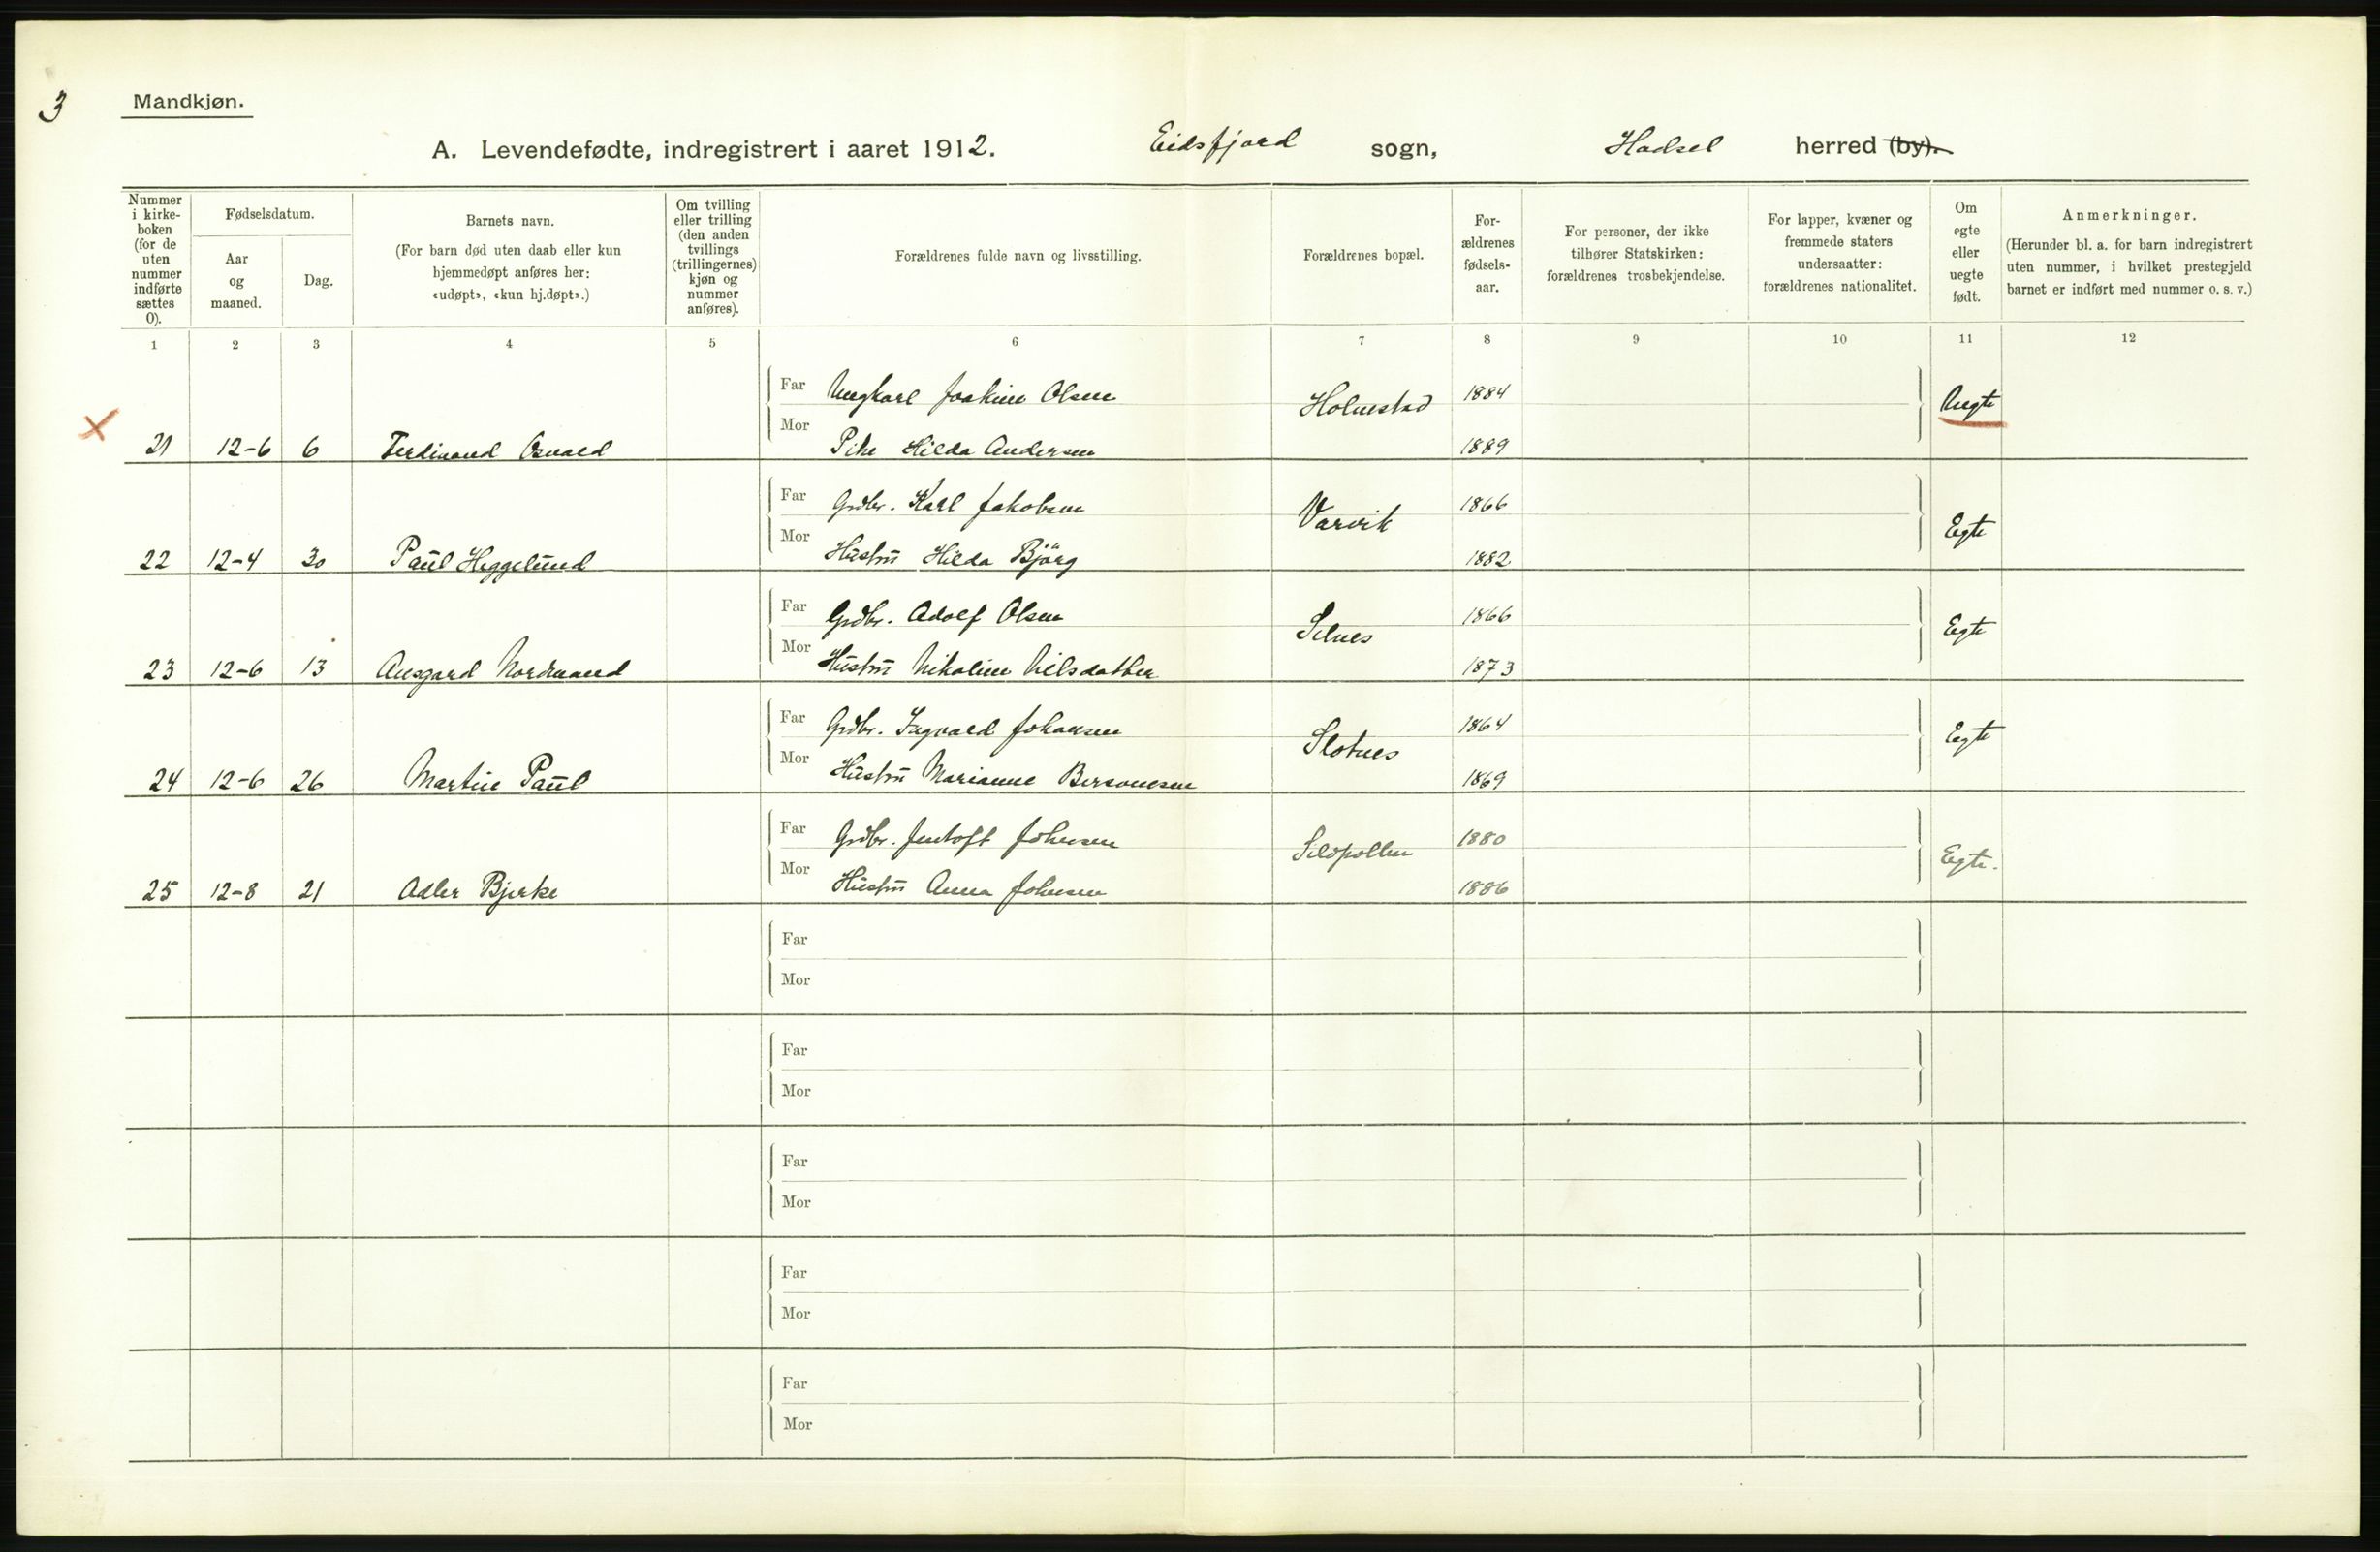 3
Mandkjøn.
A. Levendefødte, indregistrert i aaret 1912. Eidsfjord sogn, Hadsel herred (by).
Nummer i kirke-boken (for de uten nummer indførte sættes 0).
Fødselsdatum.
Aar og maaned.
Dag.
Barnets navn.
(For barn død uten daab eller kun hjemmedøpt anføres her: «udøpt», «kun hj.døpt».)
Om tvilling eller trilling (den anden tvillings (trillingernes) kjøn og nummer anføres).
Forældrenes fulde navn og livsstilling.
Forældrenes bopæl.
For-ældrenes fødsels-aar.
For personer, der ikke tilhører Statskirken: forældrenes trosbekjendelse.
For lapper, kvæner og fremmede staters undersaatter: forældrenes nationalitet.
Om egte eller uegte født.
Anmerkninger.
(Herunder bl. a. for barn indregistrert uten nummer, i hvilket prestegjeld barnet er indført med nummer o. s. v.)
1 2 3 4 5 6 7 8 9 10 11 12
Far Ungkarl Joakim Olsen Holmstad 1884 Uegte
21 12-6 6 Ferdinand Osvald Mor Pike Hilda Andersen 1889
Far Grdbr. Karl Jakobsen Varvik 1866 Egte
22 12-4 30 Paul Heggelund Mor Hustru Hilda Bjørg 1882
Far Grdbr. Adolf Olsen Selnes 1866 Egte
23 12-6 13 Ansgard Nordmand Mor Hustru Nikoline Nilsdatter 1873
Far Grdbr. Ingvald Johansen Slotnes 1864 Egte
24 12-6 26 Martin Paul Mor Hustru Marianne 1869
Far Grdbr. Jentoft Johnsen Sildpollen 1880 Egte.
25 12-8 21 Adler Bjerke Mor Hustru Anna Johnsen 1886
Far
Mor
Far
Mor
Far
Mor
Far
Mor
Far
Mor